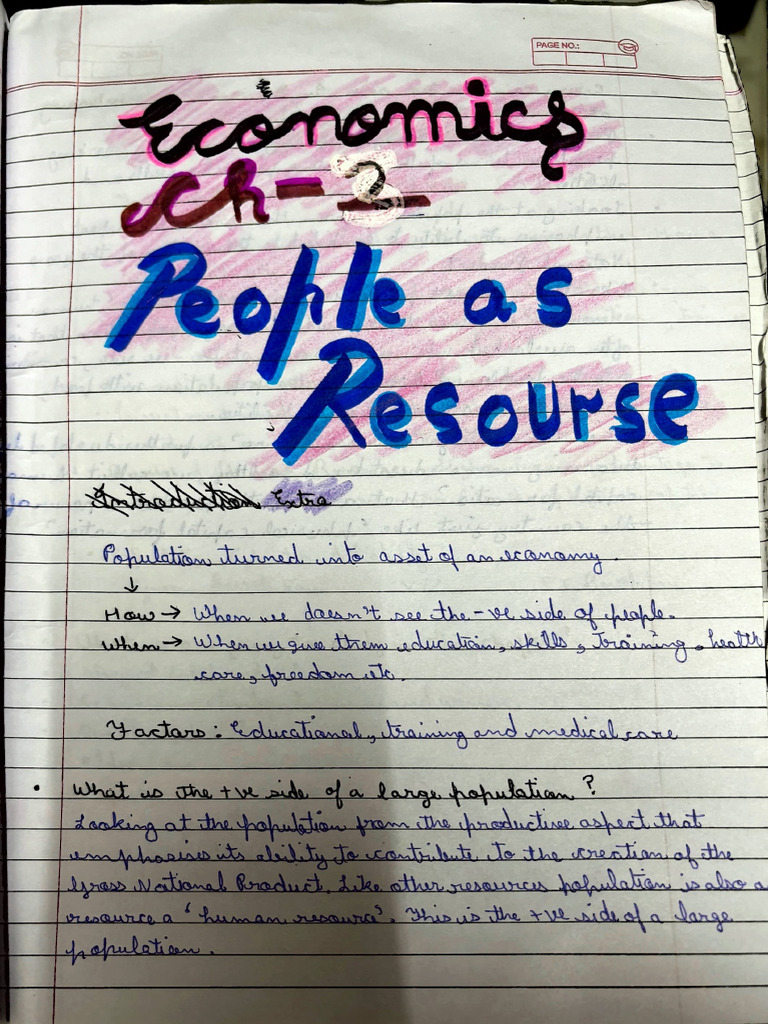 PAGE NO.:
Economics
Ch-2
People as
Resourse
Introduction Extra
Population turned into asset of an economy.
↓
How → When we doesn't see the -ve side of people.
When → When we give them education, skills, training, health
care, freedom etc.
Factors: Educational, training and medical care
• What is the +ve side of a large population?
Looking at the population from the productive aspect that
emphasises its ability to contribute to the creation of the
Gross National Product. Like other resources population is also a
resource a 'human resource'. This is the +ve side of a large
population.